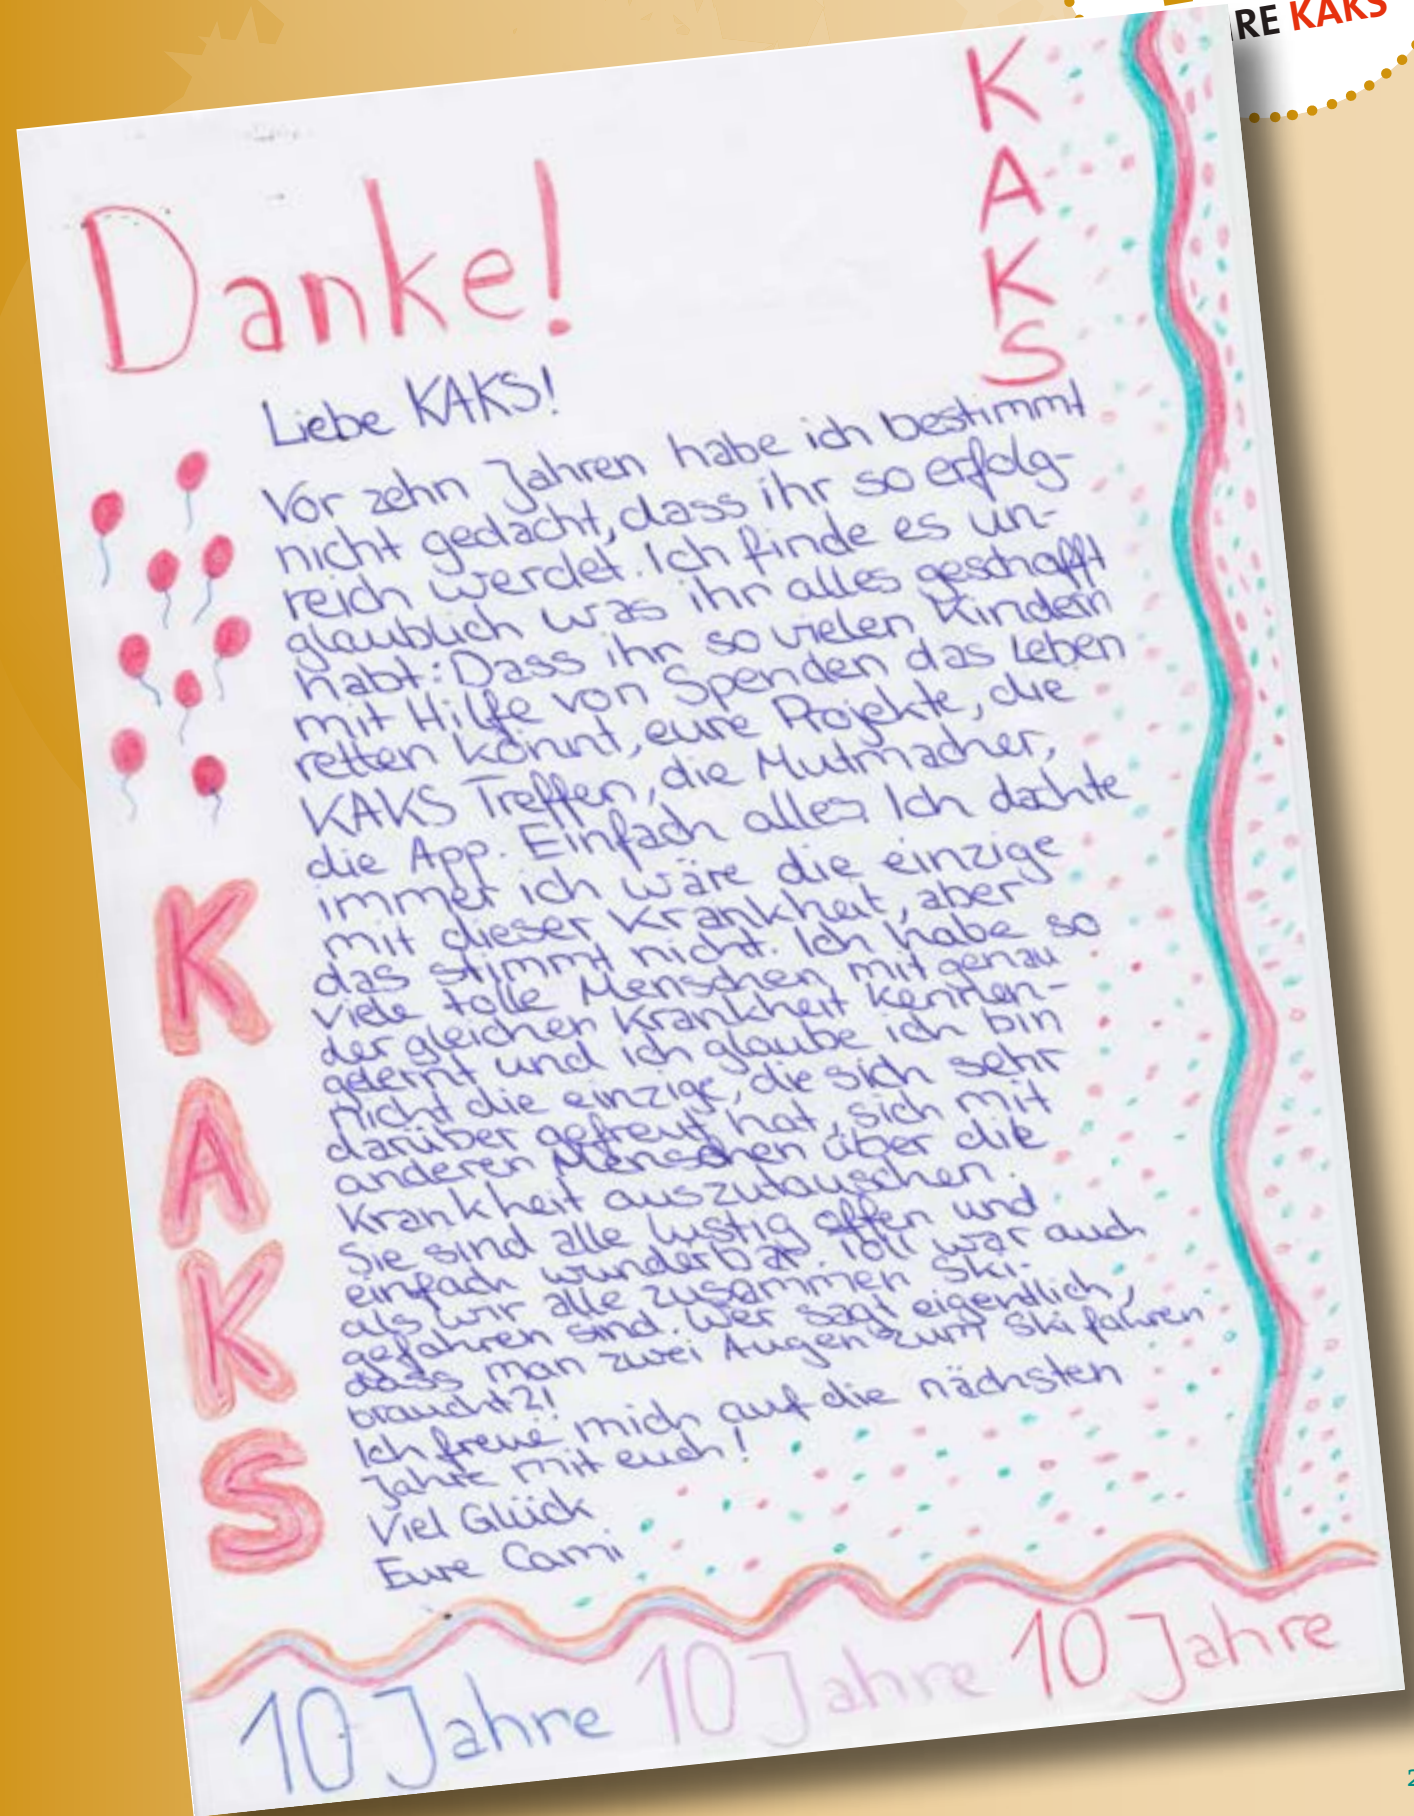 RE KAKS
K
A
K
S
Danke!
Liebe KAKS!
Vor zehn Jahren habe ich bestimmt
nicht gedacht, dass ihr so erfolg-
reich werdet. Ich finde es un-
glaublich was ihr alles geschafft
habt: Dass ihr so vielen Kindern
mit Hilfe von Spenden das Leben
retten könnt, eure Projekte, die
KAKS Treffen, die Mutmacher,
die App. Einfach alles! Ich dachte
immer ich wäre die einzige
mit dieser Krankheit, aber
das stimmt nicht. Ich habe so
viele tolle Menschen mit genau
der gleichen Krankheit kennen-
gelernt und ich glaube ich bin
nicht die einzige, die sich sehr
darüber gefreut hat, sich mit
anderen Menschen über die
Krankheit auszutauschen.
Sie sind alle lustig offen und
einfach wunderbar. Toll war auch
als wir alle zusammen Ski-
gefahren sind. Wer sagt eigentlich,
dass man zwei Augen zum Ski fahren
braucht?!
Ich freue mich auf die nächsten
Jahre mit euch!
Viel Glück
Eure Cami
K
A
K
S
10 Jahre 10 Jahre 10 Jahre
2